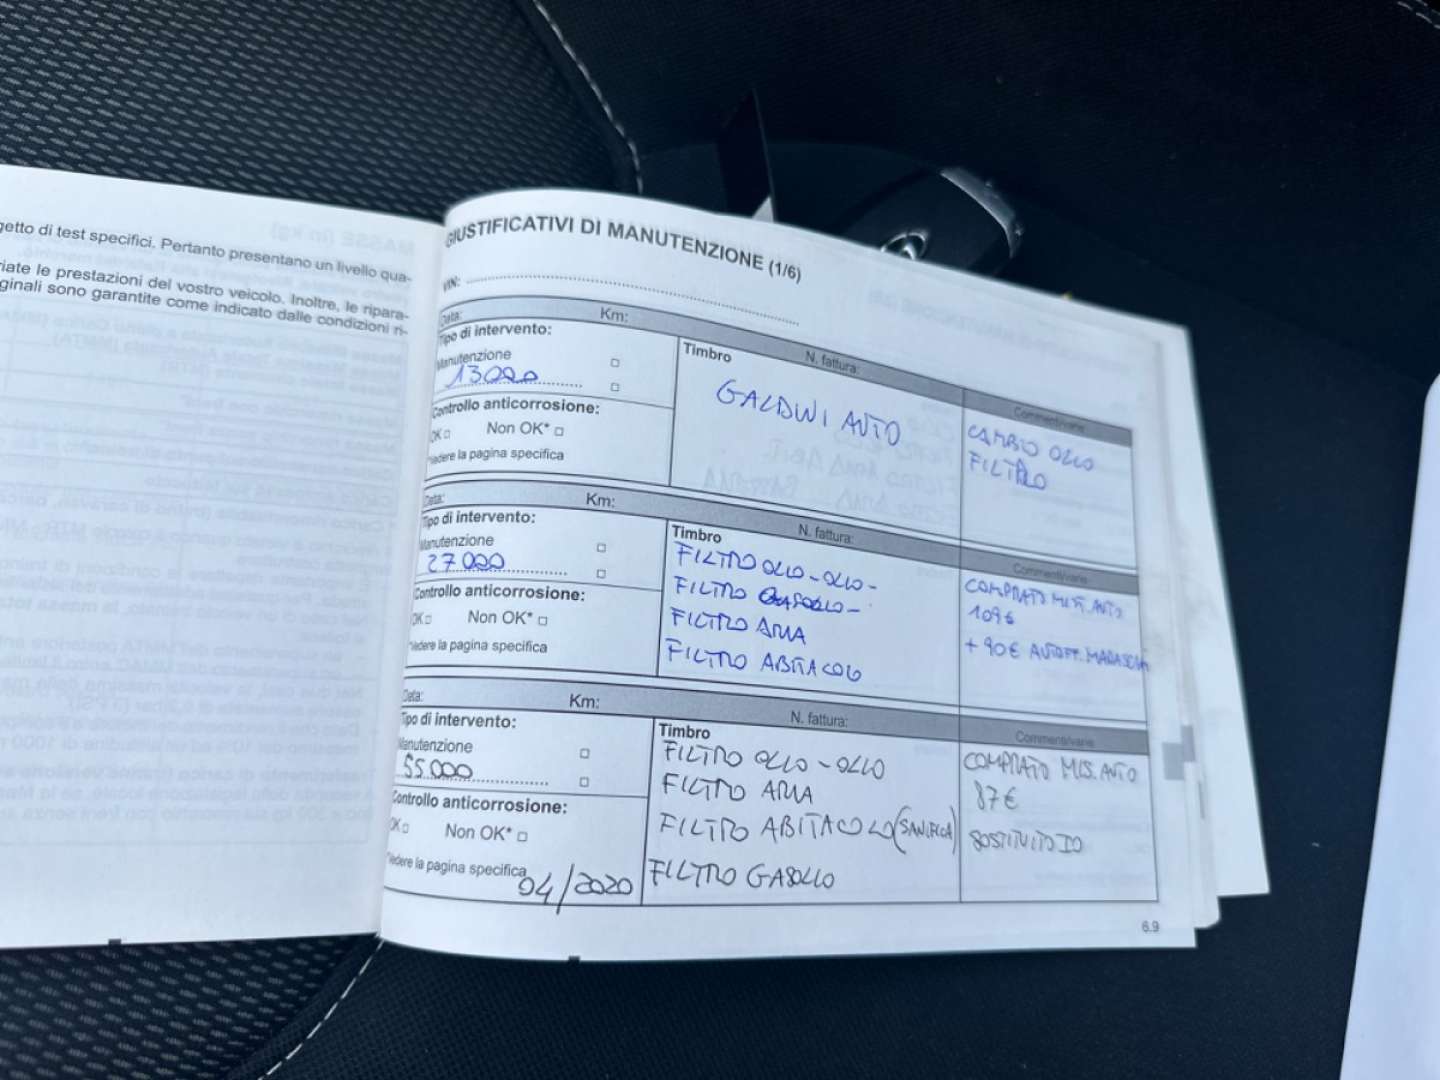 getto di test specifici. Pertanto presentano un livello qua-
riate le prestazioni del vostro veicolo. Inoltre, le ripara-
ginali sono garantite come indicato dalle condizioni ri-
GIUSTIFICATIVI DI MANUTENZIONE (1/6)
VIN:
Data: Km:
Tipo di intervento:
Manutenzione
13000
Controllo anticorrosione:
OK Non OK*
Vedere la pagina specifica
Timbro N. fattura:
GALDINI AUTO
Commenti/varie
CAMBIO OLIO
FILTRO
Data: Km:
Tipo di intervento:
Manutenzione
27000
Controllo anticorrosione:
OK Non OK*
Vedere la pagina specifica
Timbro N. fattura:
FILTRO OLIO - OLIO -
FILTRO GASOLIO -
FILTRO ARIA
FILTRO ABITACOLO
Commenti/varie
COMPRATO MIST. AUTO
109€
+ 90€ AUTOFF.
Data: Km:
Tipo di intervento:
Manutenzione
55000
Controllo anticorrosione:
OK Non OK*
Vedere la pagina specifica
04/2020
Timbro N. fattura:
FILTRO OLIO - OLIO
FILTRO ARIA
FILTRO ABITACOLO (SANIFICA)
FILTRO GASOLIO
Commenti/varie
COMPRATO MIS. AUTO
87€
SOSTITUITO IO
6.9